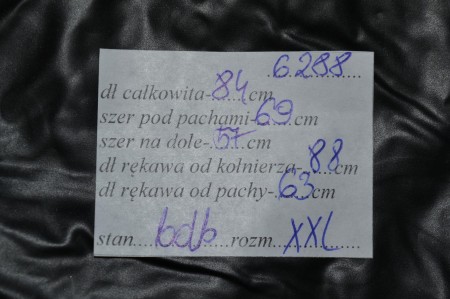 6.288
dl całkowita-84cm
szer pod pachami-69cm
szer na dole-57cm
dl rękawa od kołnierza-88cm
dl rękawa od pachy-63cm
stan....bdb....rozm.XXL